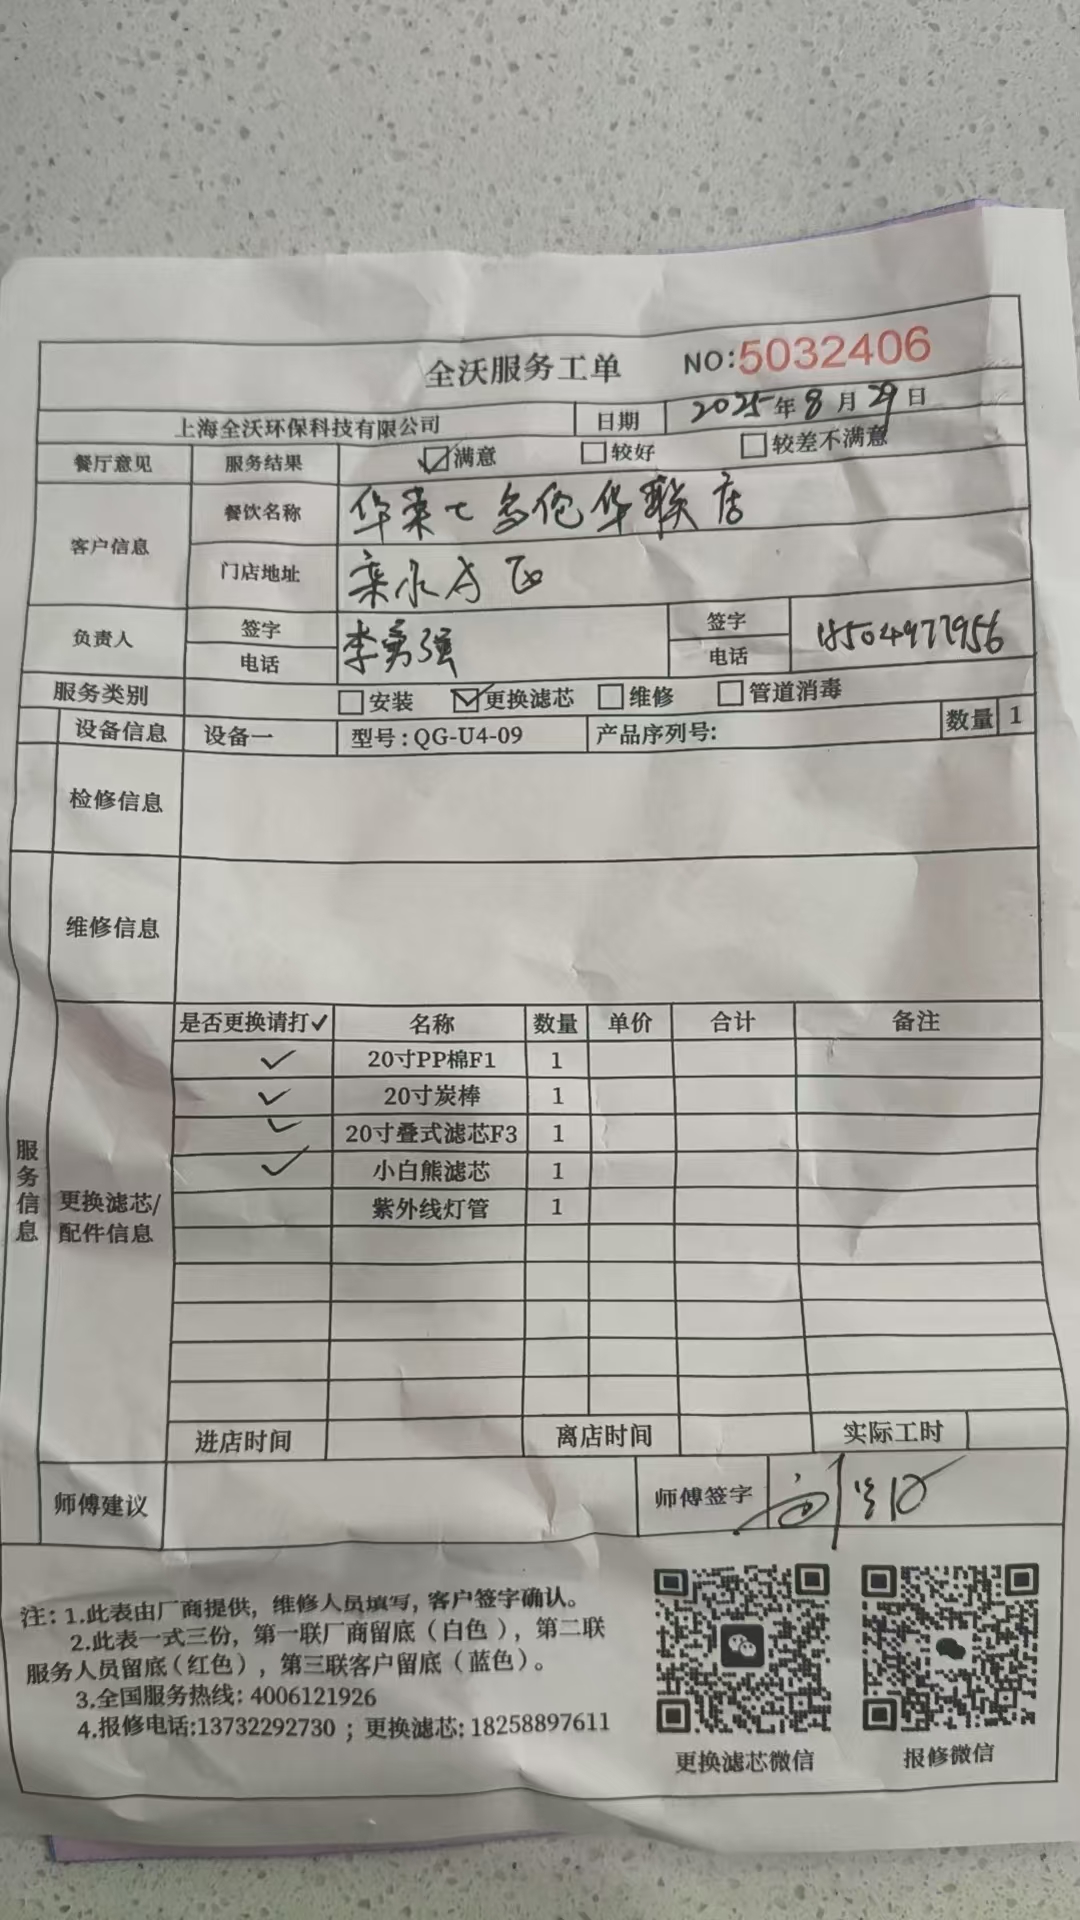 全沃服务工单 NO:5032406
上海全沃环保科技有限公司 日期 2025年8月29日
餐厅意见 服务结果 ☑满意 □较好 □较差不满意
客户信息 餐饮名称 华莱士多伦华联店
门店地址
负责人 签字 电话 李勇强 签字 电话 18504977956
服务类别 □安装 ☑更换滤芯 □维修 □管道消毒
设备信息 设备一 型号:QG-U4-09 产品序列号: 数量 1
检修信息
维修信息
服务信息
更换滤芯/配件信息
是否更换请打✓ 名称 数量 单价 合计 备注
✓ 20寸PP棉F1 1
✓ 20寸炭棒 1
✓ 20寸叠式滤芯F3 1
✓ 小白熊滤芯 1
紫外线灯管 1
进店时间 离店时间 实际工时
师傅建议 师傅签字
注: 1.此表由厂商提供, 维修人员填写, 客户签字确认。
2.此表一式三份, 第一联厂商留底(白色), 第二联
服务人员留底(红色), 第三联客户留底(蓝色)。
3.全国服务热线: 4006121926
4.报修电话:13732292730 ; 更换滤芯: 18258897611
更换滤芯微信 报修微信